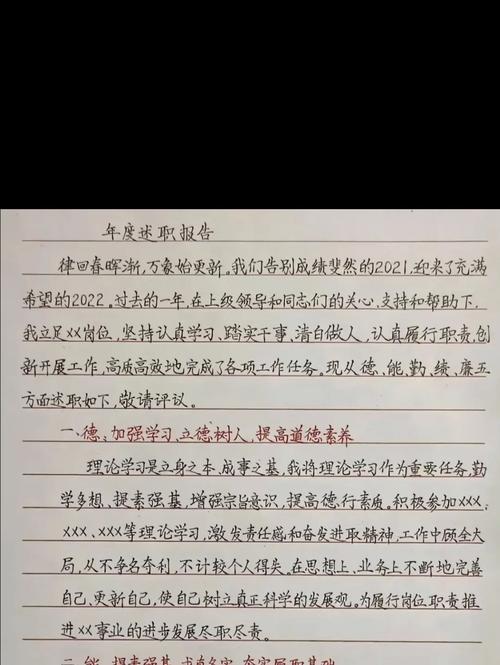 年度述职报告
律回春晖渐,万象始更新。我们告别成绩斐然的2021,迎来了充满
希望的2022。过去的一年,在上级领导和同志们的关心、支持和帮助下,
我立足XX岗位,坚持认真学习、踏实干事、清白做人,认真履行职责,创
新开展工作,高质高效地完成了各项工作任务。现从德、能、勤、绩、廉五
方面述职如下,敬请评议。
一、德:加强学习、立德树人,提高道德素养
理论学习是立身之本、成事之基,我将理论学习作为重要任务,勤
学多想、提素强基,增强宗旨意识,提高德、行素质。积极参加XXX、
XXX、XXX等理论学习,激发责任感和奋发进取精神,工作中顾全大
局,从不争名夺利,不计较个人得失。在思想上、业务上不断地完善
自己、更新自己,使自己树立真正科学的发展观。为履行岗位职责推
进XX事业的进步发展尽职尽责。
二、能:提素强基、